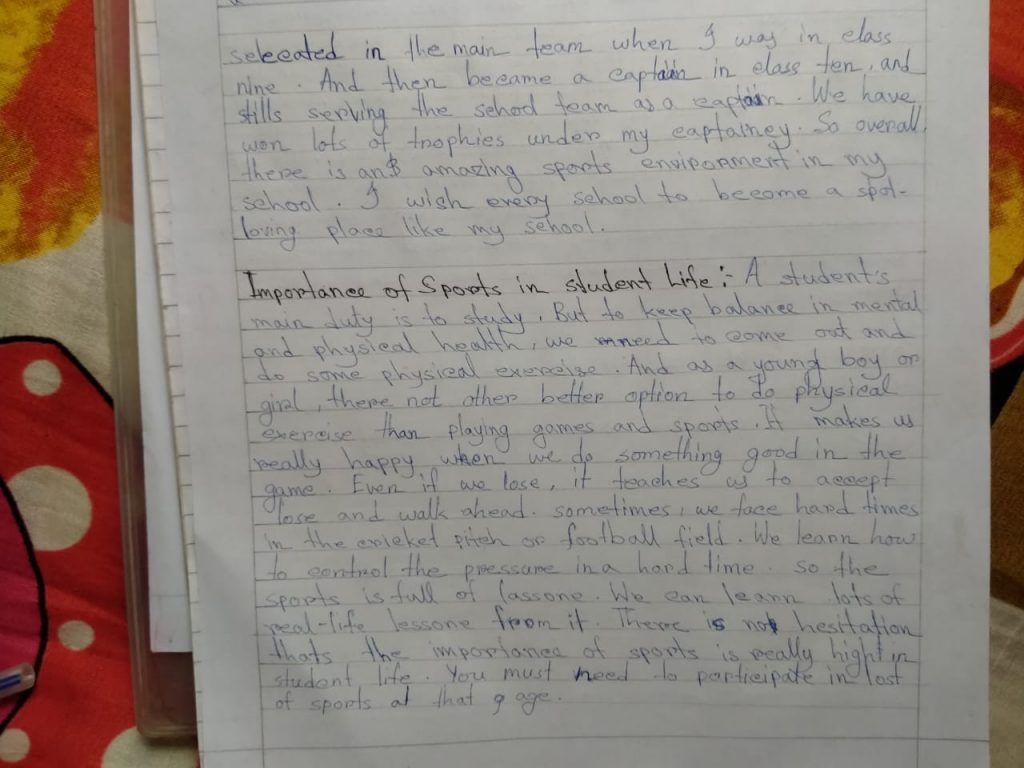 selecated in the main team when I way in class
nine. And then became a captain in class ten, and
stills serving the school team as a captain. We have
won lots of trophies under my captainey. So overall,
there is an amazing sports environment in my
school. I wish every school to become a spot-
loving place like my school.
Importance of Sports in student Life :- A student's
main duty is to study. But to keep balance in mental
and physical health, we need to come out and
do some physical exercise. And as a young boy or
girl, there not other better option to do physical
exercise than playing games and sports. It makes us
really happy when we do something good in the
game. Even if we lose, it teaches us to accept
lose and walk ahead. sometimes, we face hard times
in the cricket pitch or football field. We learn how
to control the pressure in a hard time. so the
sports is full of lassone. We can learn lots of
real-life lessone from it. There is not hesitation
thats the importance of sports is really hight in
student life. You must need to participate in lost
of sports at that age.